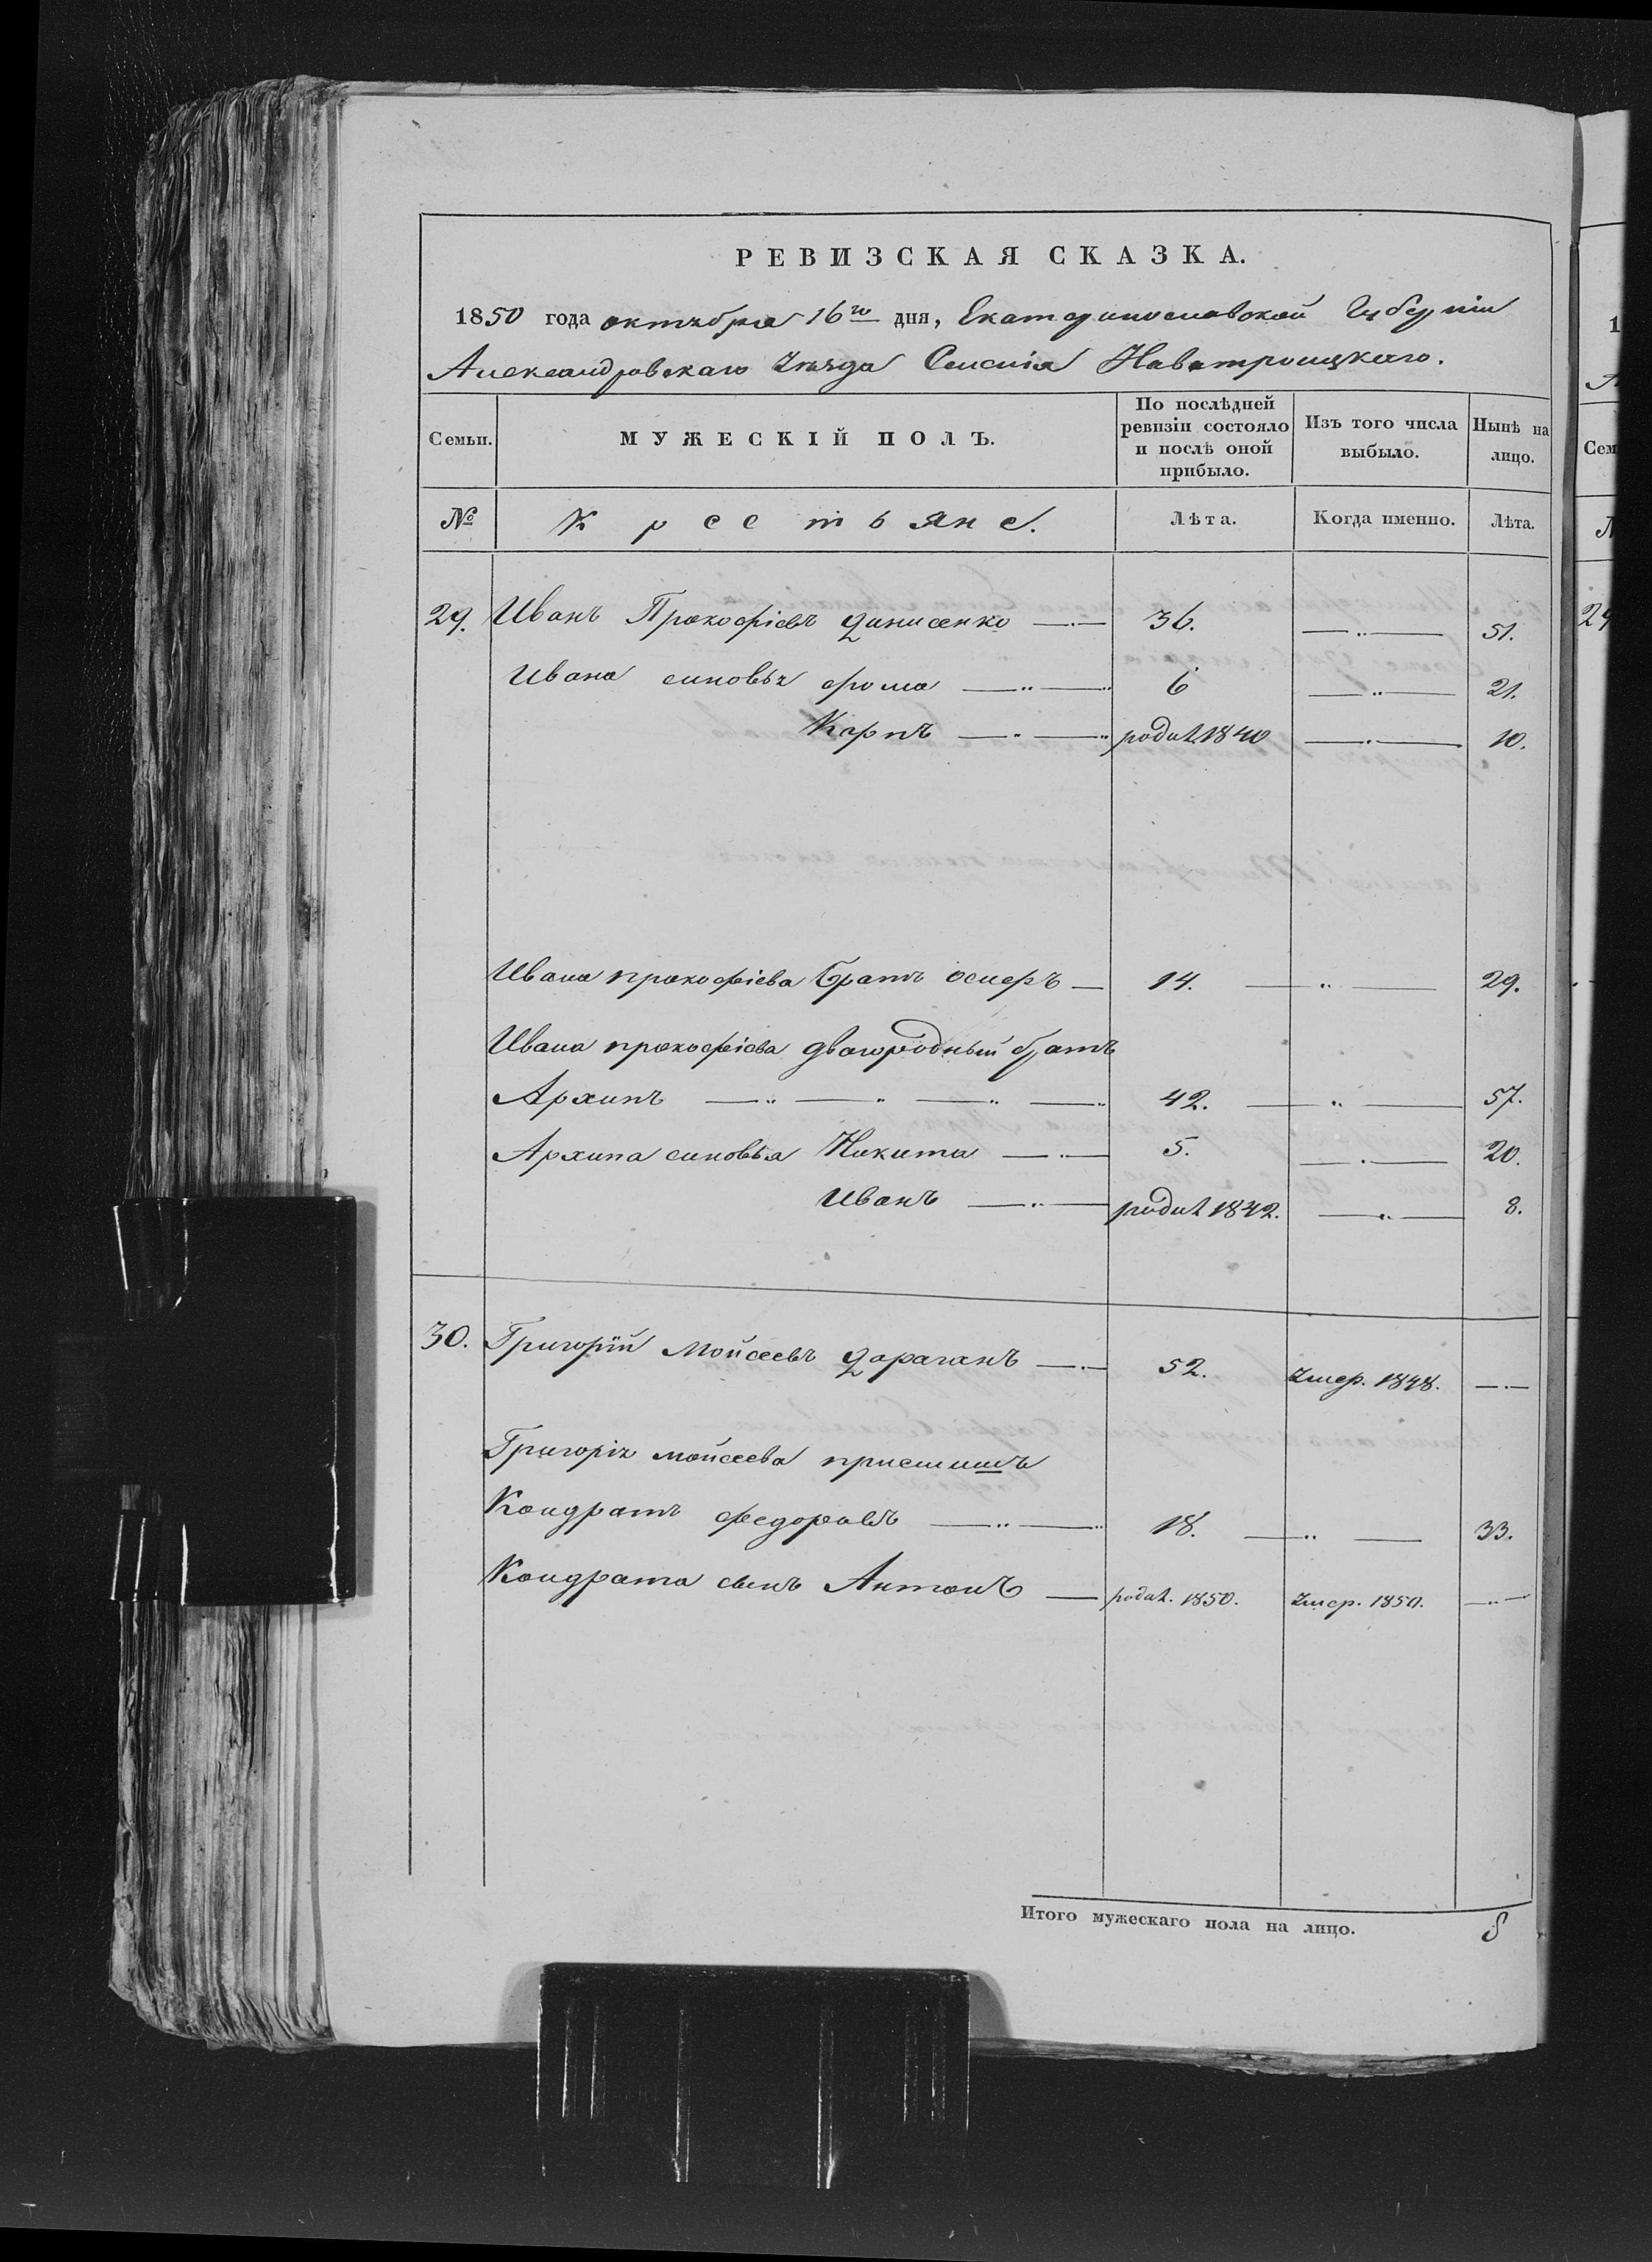 РЕВИЗСКАЯ СКАЗКА.
1850 года октября 16го дня, Екатеринославской Губерніи
Александровскаго Уѣзда Селенія Наватроицкаго.
Семьи. МУЖЕСКІЙ ПОЛЪ. По послѣдней ревизіи состояло и послѣ оной прибыло. Изъ того числа выбыло. Нынѣ на лицо.
№ Крестьяне. Лѣта. Когда именно. Лѣта.
29. Иванъ Прокофіевъ Динисенко 36. 51.
Ивана синовья фома 6 21.
Карпъ родил. 1840 10.
Ивана прокофіева братъ осифъ 14. 29.
Ивана прокофіева двоюродный братъ
Архипъ 42. 57.
Архипа синовья Никита 5. 20.
Иванъ родил 1842. 8.
30. Григорій Мойсеевъ Дараганъ 52. Умер. 1848.
Григорія мойсеева приемишъ
Кондратъ федоровъ 18. 33.
Кондрата сынъ Антонъ родил. 1850. Умер. 1850.
Итого мужескаго пола на лицо. 8